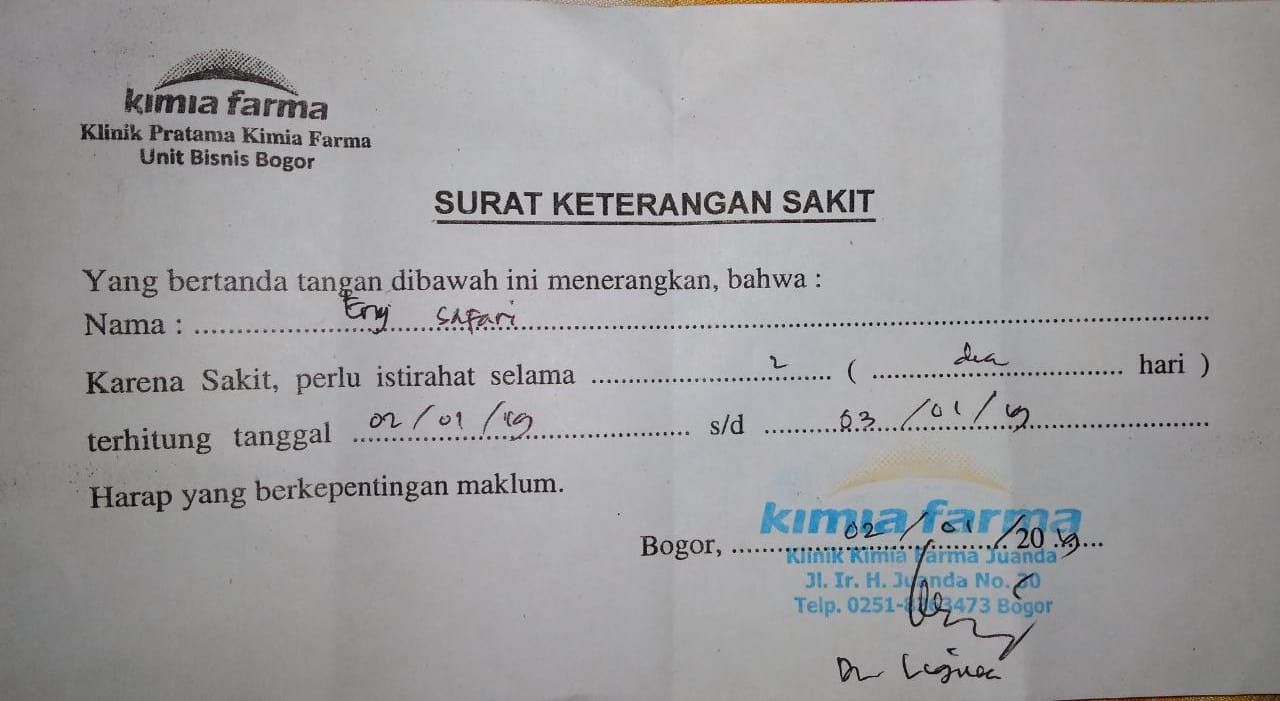 kimia farma
Klinik Pratama Kimia Farma
Unit Bisnis Bogor
SURAT KETERANGAN SAKIT
Yang bertanda tangan dibawah ini menerangkan, bahwa :
Nama : Eny Safari
Karena Sakit, perlu istirahat selama 2 ( dua hari )
terhitung tanggal 02/01/19 s/d 03/01/19
Harap yang berkepentingan maklum.
kimia farma
Bogor, 02/01/2019
Klinik Kimia Farma Juanda
Jl. Ir. H. Juanda No.
Telp. 0251- Bogor
Dr